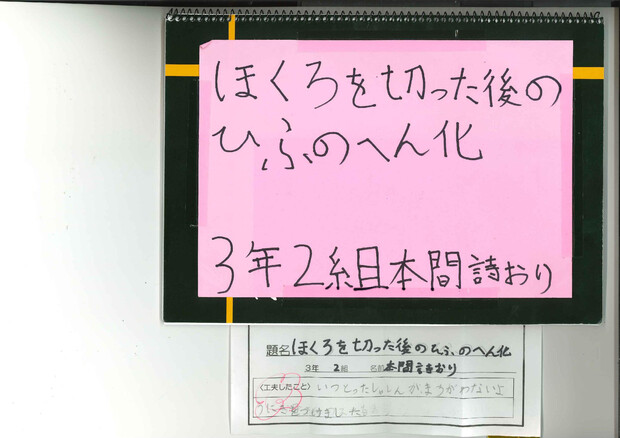 ほくろを切った後の
ひふのへん化
3年2組本間詩おり
題名 ほくろを切った後のひふのへん化
3年 2組 名前 本間詩おり
〈工夫したこと〉 いつとったしゃしんかまちがわないよ
うに